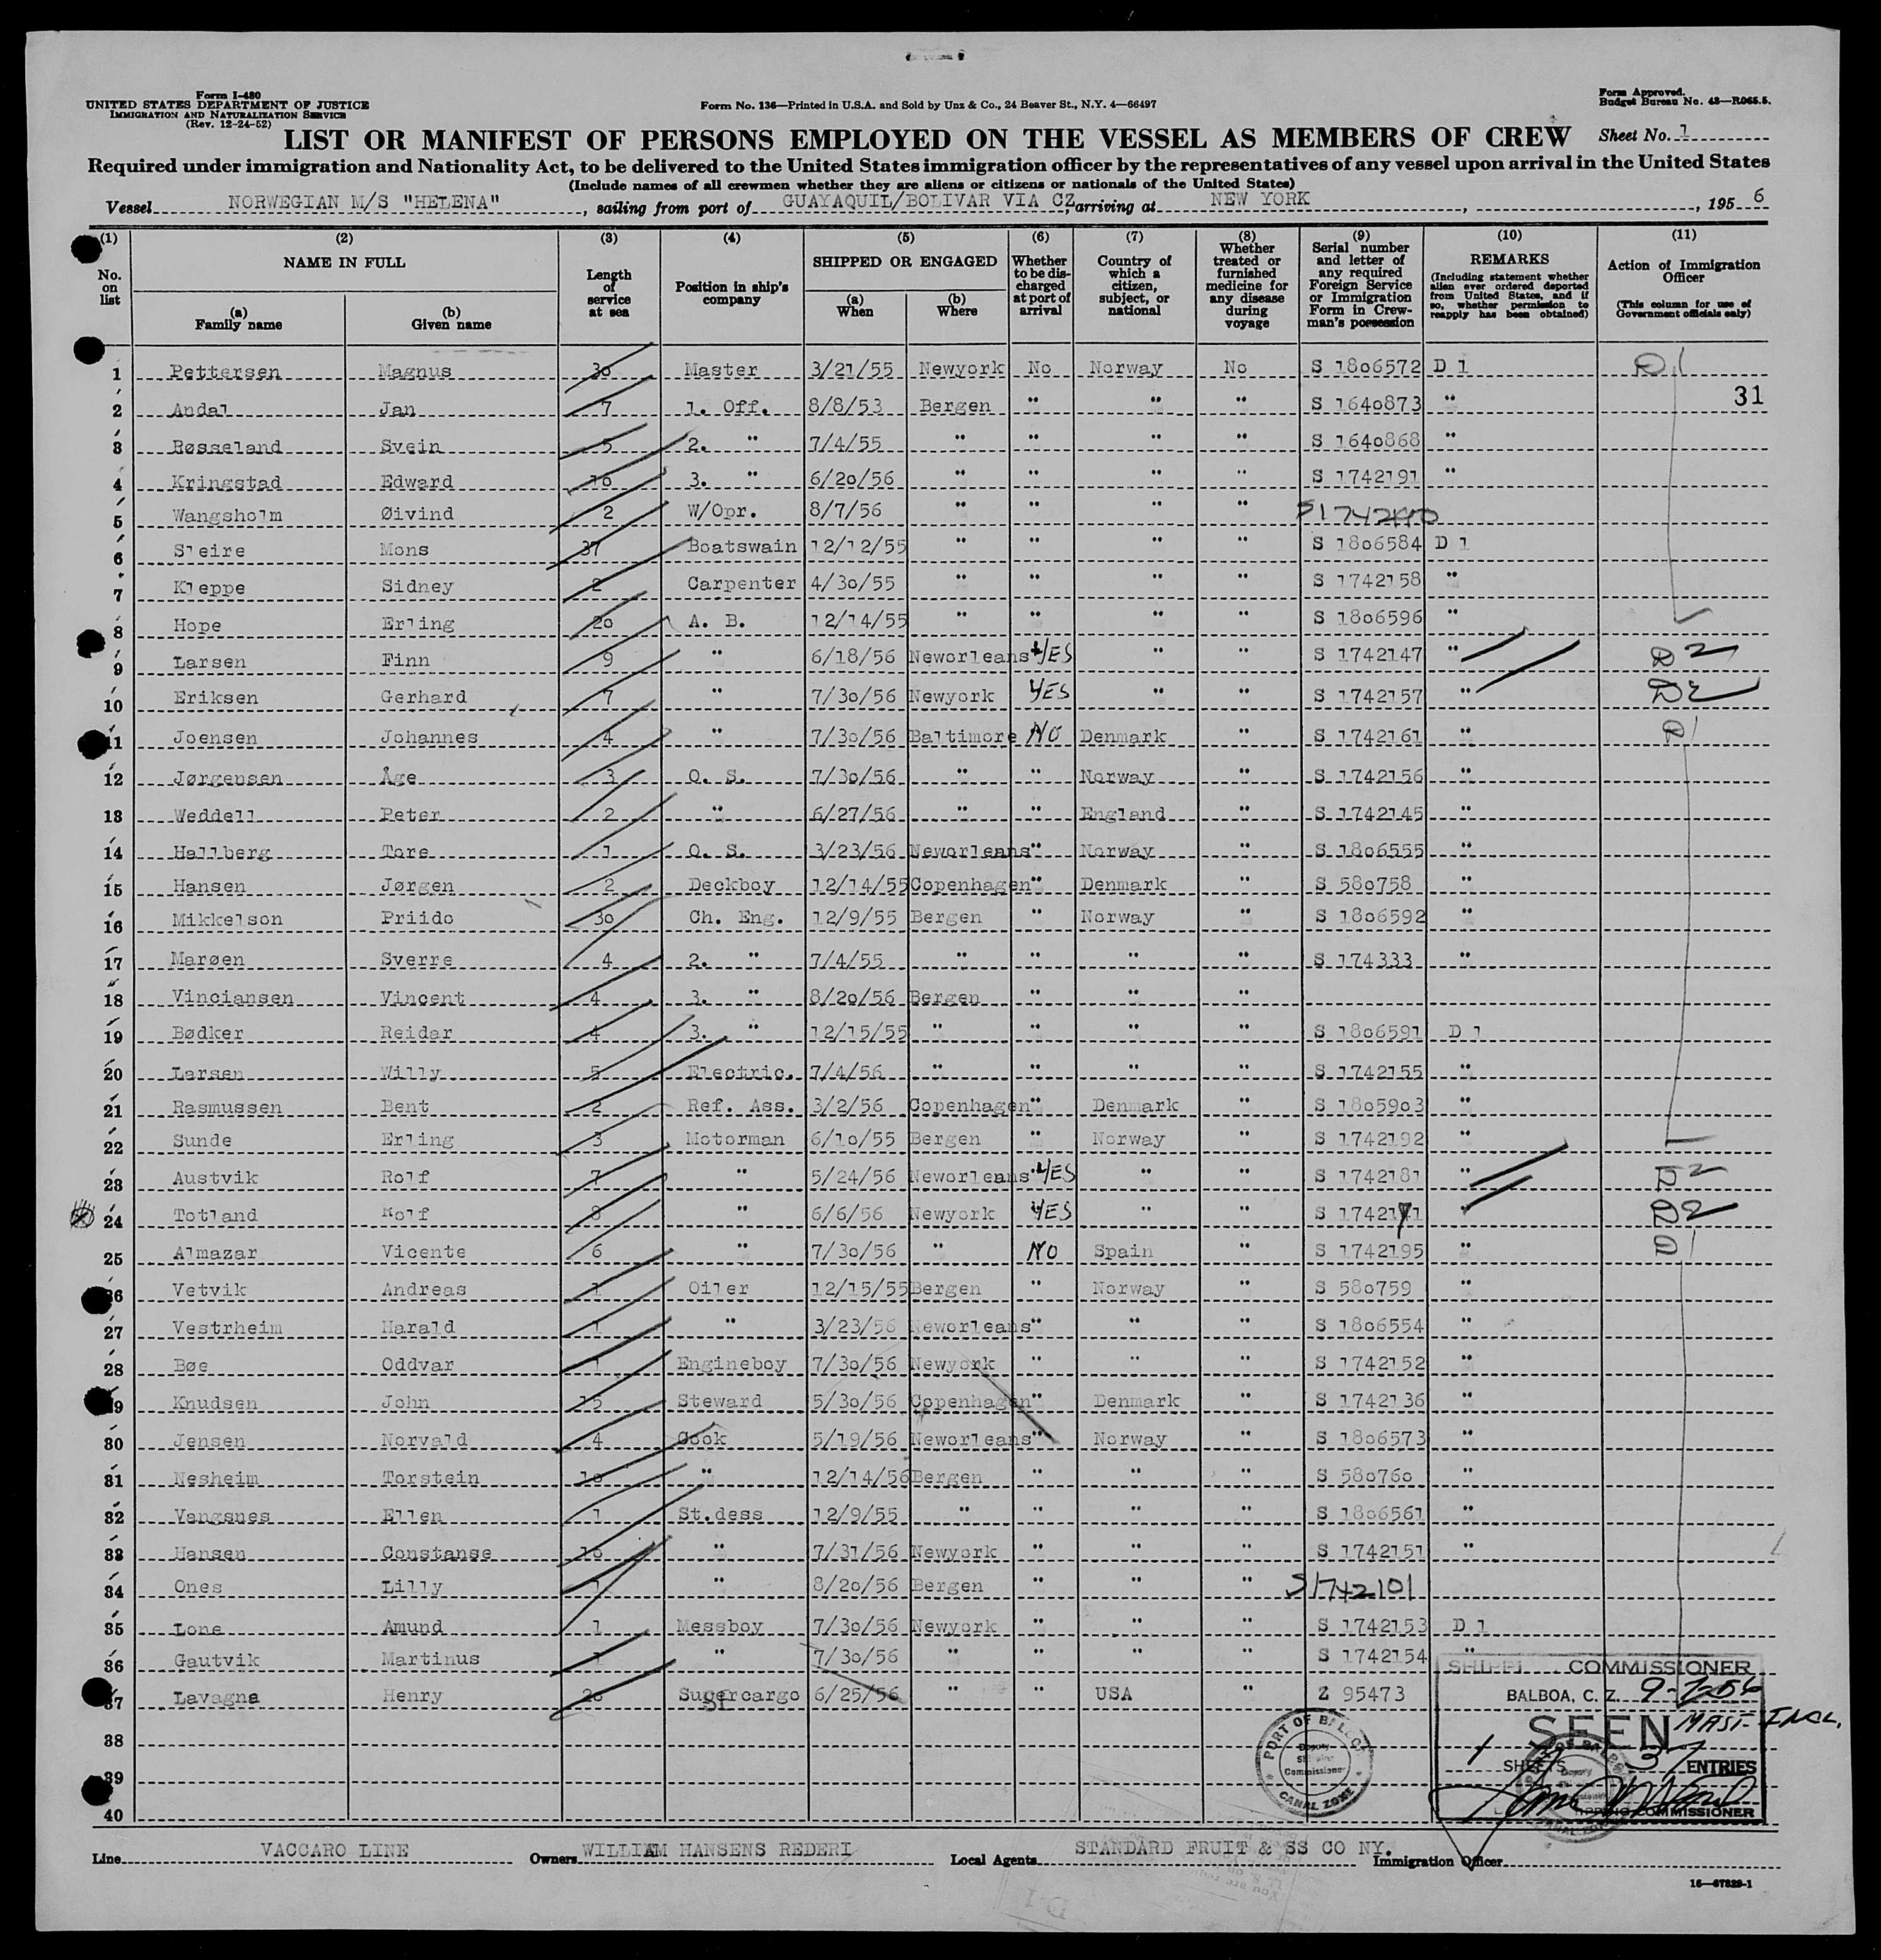 Form I-480
UNITED STATES DEPARTMENT OF JUSTICE
IMMIGRATION AND NATURALIZATION SERVICE
(Rev. 12-24-52)
Form No. 136—Printed in U.S.A. and Sold by Unz & Co., 24 Beaver St., N.Y. 4—66497
Form Approved.
Budget Bureau No. 43—R065.5.
LIST OR MANIFEST OF PERSONS EMPLOYED ON THE VESSEL AS MEMBERS OF CREW
Sheet No. 1
Required under immigration and Nationality Act, to be delivered to the United States immigration officer by the representatives of any vessel upon arrival in the United States
(Include names of all crewmen whether they are aliens or citizens or nationals of the United States)
Vessel NORWEGIAN M/S "HELENA", sailing from port of GUAYAQUIL/BOLIVAR VIA CZ, arriving at NEW YORK, , 195 6
(1) (2) (3) (4) (5) (6) (7) (8) (9) (10) (11)
No. on list
NAME IN FULL
(a) Family name
(b) Given name
Length of service at sea
Position in ship's company
SHIPPED OR ENGAGED
(a) When
(b) Where
Whether to be discharged at port of arrival
Country of which a citizen, subject, or national
Whether treated or furnished medicine for any disease during voyage
Serial number and letter of any required Foreign Service or Immigration Form in Crewman's possession
REMARKS
(Including statement whether alien ever ordered deported from United States, and if so, whether permission to reapply has been obtained)
Action of Immigration Officer
(This column for use of Government officials only)
1 Pettersen Magnus 30 Master 3/21/55 Newyork No Norway No S 1806572 D 1 D1
31
2 Andal Jan 7 1. Off. 8/8/53 Bergen " " " S 1640873 "
3 Røsseland Svein 5 2. " 7/4/55 " " " " S 1640868 "
4 Kringstad Edward 10 3. " 6/20/56 " " " " S 1742191 "
5 Wangsholm Øivind 2 W/Opr. 8/7/56 " " " "
6 Sleire Mons 37 Boatswain 12/12/55 " " " " S 1806584 D 1
7 Kleppe Sidney 2 Carpenter 4/30/55 " " " " S 1742158 "
8 Hope Erling 20 A. B. 12/14/55 " " " " S 1806596 "
9 Larsen Finn 9 " 6/18/56 Neworleans YES " " S 1742147 " D2
10 Eriksen Gerhard 7 " 7/30/56 Newyork YES " " S 1742157 " D2
11 Joensen Johannes 4 " 7/30/56 Baltimore NO Denmark " S 1742161 " D1
12 Jørgensen Åge 3 O. S. 7/30/56 " " Norway " S 1742156 "
13 Weddell Peter 2 " 6/27/56 " " England " S 1742145 "
14 Hallberg Tore 1 O. S. 3/23/56 Neworleans " Norway " S 1806555 "
15 Hansen Jørgen 2 Deckboy 12/14/55 Copenhagen " Denmark " S 580758 "
16 Mikkelson Priido 30 Ch. Eng. 12/9/55 Bergen " Norway " S 1806592 "
17 Marøen Sverre 4 2. " 7/4/55 " " " " S 174333 "
18 Vinciansen Vincent 4 3. " 8/20/56 Bergen " " "
19 Bødker Reidar 4 3. " 12/15/55 " " " " S 1806591 D 1
20 Larsen Willy 5 Electric. 7/4/56 " " " " S 1742155 "
21 Rasmussen Bent 2 Ref. Ass. 3/2/56 Copenhagen " Denmark " S 1805903 "
22 Sunde Erling 3 Motorman 6/10/55 Bergen " Norway " S 1742192 "
23 Austvik Rolf 7 " 5/24/56 Neworleans YES " " S 1742181 " D2
24 Totland Rolf 8 " 6/6/56 Newyork YES " " S 1742171 " D2
25 Almazar Vicente 6 " 7/30/56 " NO Spain " S 1742195 " D1
26 Vetvik Andreas 1 Oiler 12/15/55 Bergen " Norway " S 580759 "
27 Vestrheim Harald 1 " 3/23/56 Neworleans " " " S 1806554 "
28 Bøe Oddvar 1 Engineboy 7/30/56 Newyork " " " S 1742152 "
29 Knudsen John 15 Steward 5/30/56 Copenhagen " Denmark " S 1742136 "
30 Jensen Norvald 4 Cook 5/19/56 Neworleans " Norway " S 1806573 "
31 Nesheim Torstein 10 " 12/14/56 Bergen " " " S 580760 "
32 Vangsnes Ellen 1 St.dess 12/9/55 " " " " S 1806561 "
33 Hansen Constanse 16 " 7/31/56 Newyork " " " S 1742151 "
34 Ones Lilly 1 " 8/20/56 Bergen " " " S1742101
35 Lone Amund 1 Messboy 7/30/56 Newyork " " " S 1742153 D 1
36 Gautvik Martinus 1 " 7/30/56 " " " " S 1742154 "
37 Lavagna Henry 20 Supercargo 6/25/56 " " USA " Z 95473
38
39
40
SHIPPING COMMISSIONER
BALBOA, C. Z. 9-7-56
SEEN MAST. INCL.
1 SHEETS 37 ENTRIES
SHIPPING COMMISSIONER
PORT OF BALBOA
Deputy Shipping Commissioner
CANAL ZONE
Line VACCARO LINE Owners WILLIAM HANSENS REDERI Local Agents STANDARD FRUIT & SS CO NY. Immigration Officer
16—67829-1